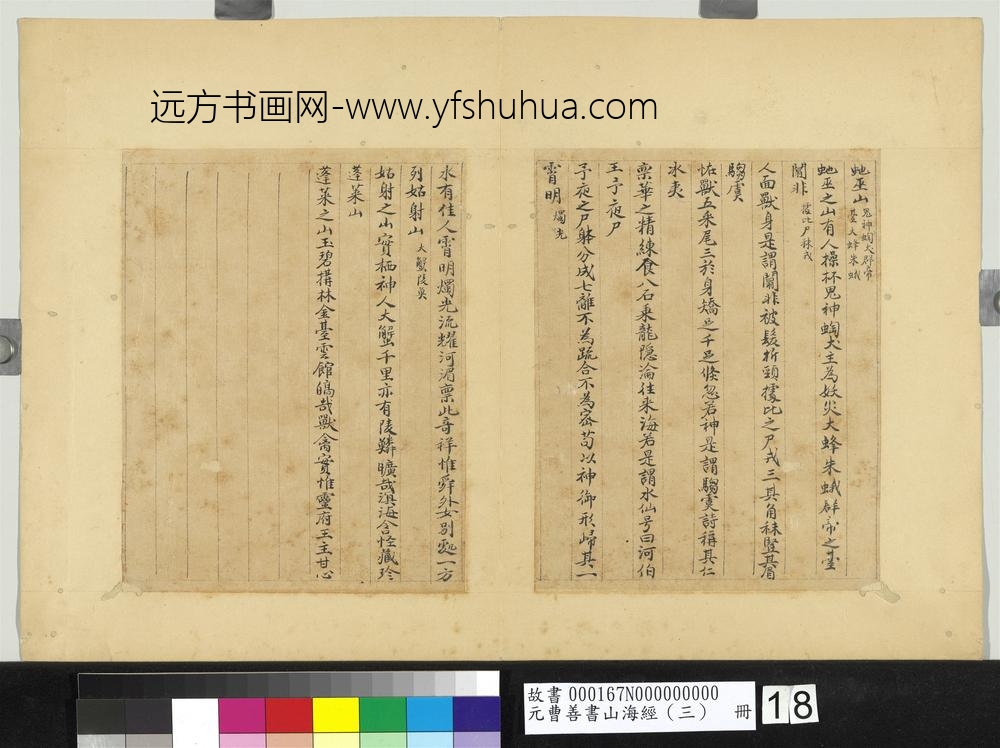 远方书画网-www.yfshuhua.com
虵巫山 鬼神蜪犬群帝
臺大蜂朱蛾
虵巫之山有人操杯鬼神蜪犬主為妖灾大蜂朱蛾群帝之臺
闒非 據比尸袜戎
人面獸身是謂闒非被髮折頸據比之尸戎三其角袜豎其眉
騶虞
怪獸五采尾三於身矯足千里倏忽若神是謂騶虞詩稱其仁
氷夷
稟華之精練食八石乘龍隐淪往来海若是謂水仙号曰河伯
王子夜尸
子夜之尸躰分成七離不為疏合不為密苟以神御形歸其一
霄明 燭光
水有佳人霄明燭光流耀河湄稟此竒祥惟舜外女別處一方
列姑射山 大蟹陵魚
姑射之山實栖神人大蟹千里亦有陵鱗曠哉溟海含怪藏珍
蓬萊山
蓬萊之山玉碧搆林金臺雲館皜哉獸禽實惟靈府王主甘心
故書 000167N000000000
元曹善書山海經（三） 冊 18